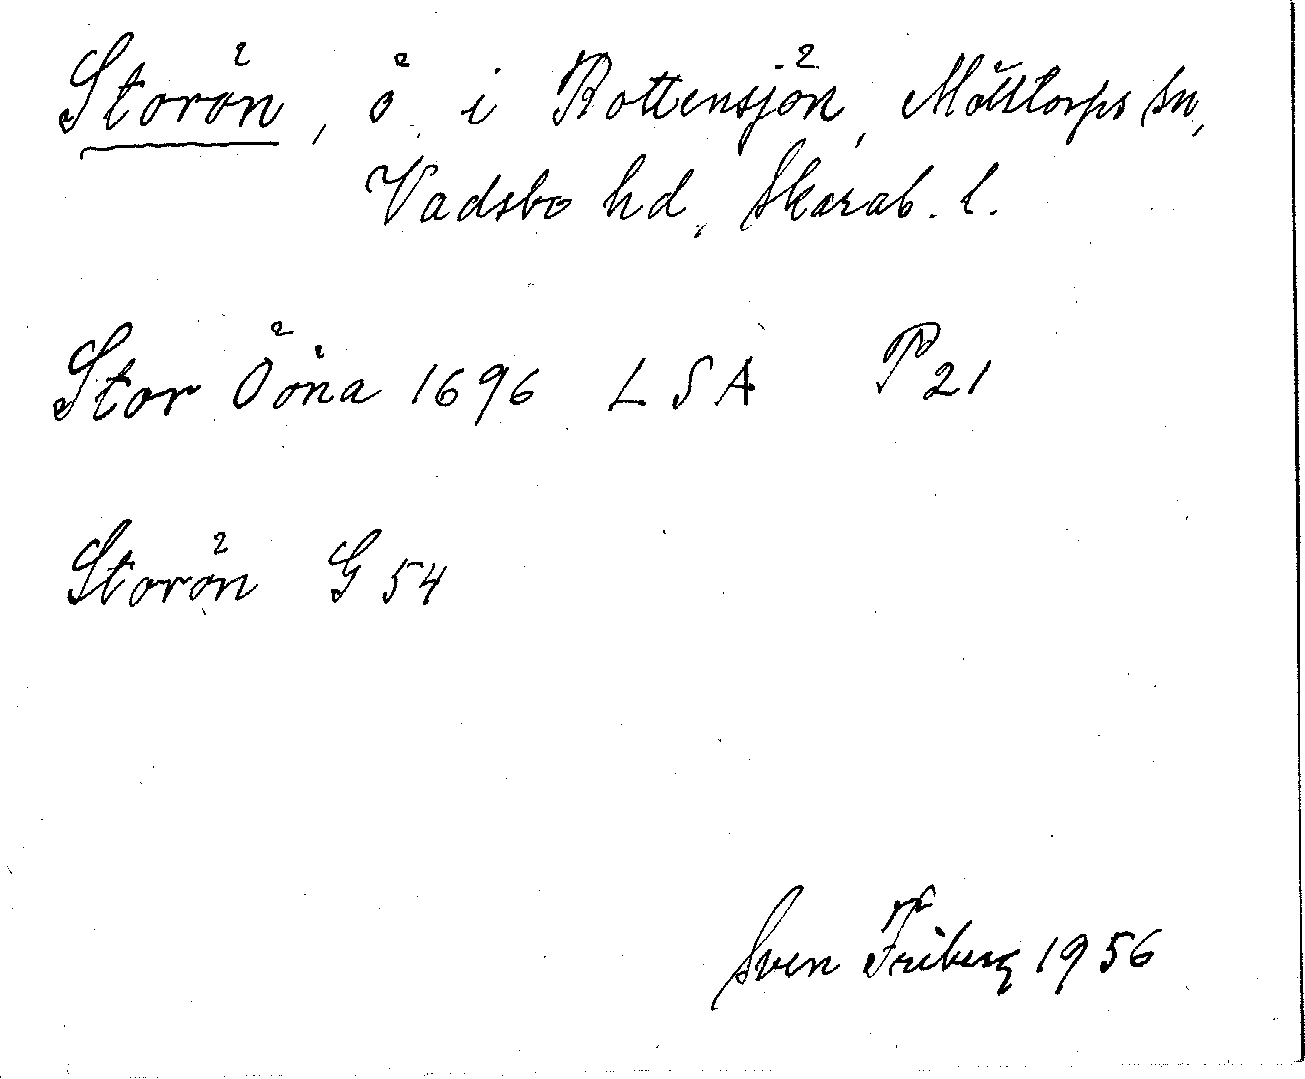 Storön, ö i Bottensjön, Mölltorps sn,
Vadsbo hd, Skarab. l.
Stor Ööna 1696 LSA P21
Storön G 54
Sven Friberg 1956